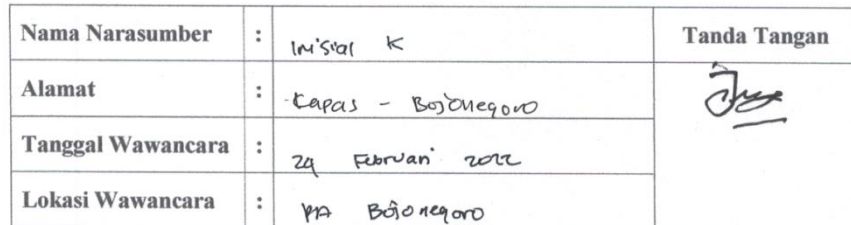 Nama Narasumber : Inisial K Tanda Tangan
Alamat : Kapas - Bojonegoro
Tanggal Wawancara : 24 Februari 2022
Lokasi Wawancara : PA Bojonegoro